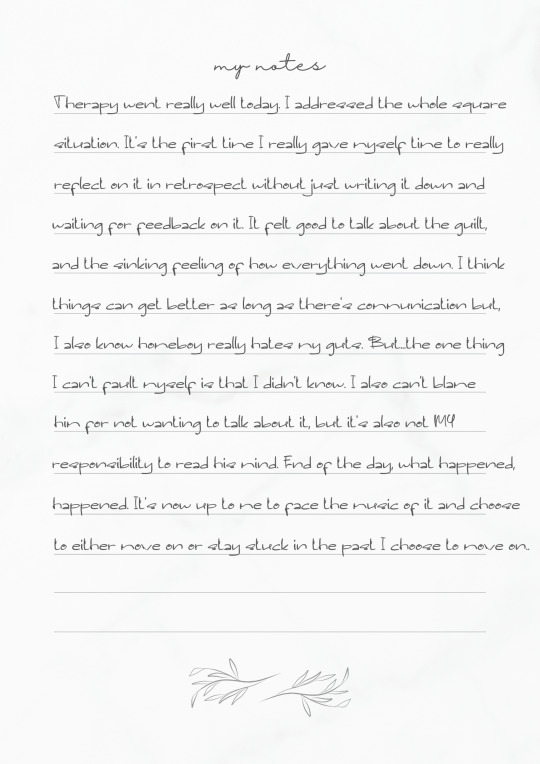 my notes
Therapy went really well today. I addressed the whole square
situation. It's the first time I really gave myself time to really
reflect on it in retrospect without just writing it down and
waiting for feedback on it. It felt good to talk about the guilt,
and the sinking feeling of how everything went down. I think
things can get better as long as there's communication but,
I also know homeboy really hates my guts. But...the one thing
I can't fault myself is that I didn't know. I also can't blame
him for not wanting to talk about it, but it's also not MY
responsibility to read his mind. End of the day, what happened,
happened. It's now up to me to face the music of it and choose
to either move on or stay stuck in the past I choose to move on.